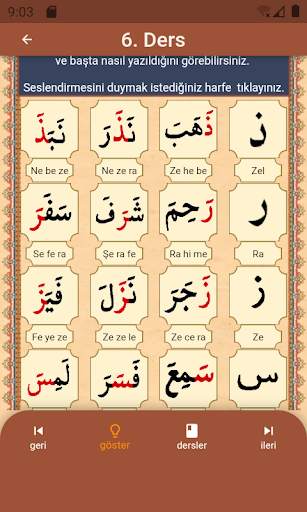 9:03
6. Ders
ve başta nasıl yazıldığını görebilirsiniz.
Seslendirmesini duymak istediğiniz harfe tıklayınız.
ذ ذَهَبَ نَذَرَ نَبَذَ
Ne be ze Ne ze ra Ze he be Zel
ر رَحِمَ شَرَفَ سَفَرَ
Se fe ra Şe ra fe Ra hi me Ra
ز زَجَرَ نَزَلَ فَيَزَ
Fe ye ze Ze ze le Ze ce ra Ze
س سَمِعَ فَسَرَ لَمِسَ
geri göster dersler ileri